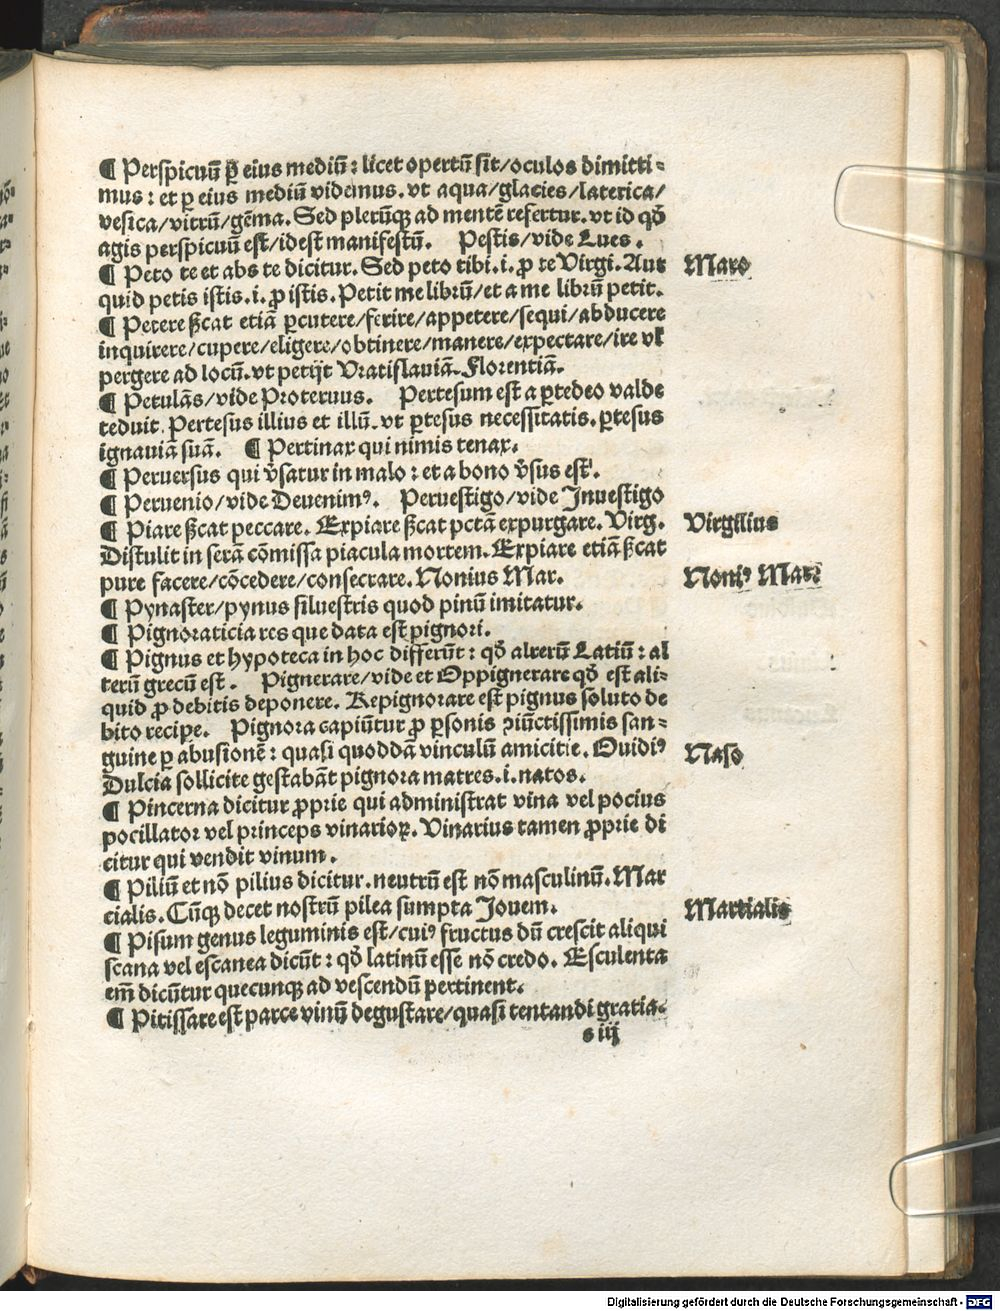 ¶ Perspicuū ꝑ eius mediū : licet opertū sit/oculos dimitti-
mus : et ꝑ eius mediū videmus. vt aqua/glacies/laterica/
vesica/vitrū/gēma. Sed plerūqꝫ ad mentē refertur. vt id qđ
agis perspicuū est/idest manifestū. Pestis/vide Lues.
¶ Peto te et abs te dicitur. Sed peto tibi .i. ꝓ te Virgi. Aut
Maro
quid petis istis .i. ꝓ istis. Petit me librū/et a me librū petit.
¶ Petere ßcat etiā ꝑcutere/ferire/appetere/sequi/abducere
inquirere/cupere/eligere/obtinere/manere/expectare/ire vł
pergere ad locū. vt petijt Vratislauiā. Florentiā.
¶ Petulās/vide Proteruus. Pertesum est a ꝑtedeo valde
teduit. Pertesus illius et illū. vt ꝑtesus necessitatis. ꝑtesus
ignauiā suā. ¶ Pertinax qui nimis tenax.
¶ Peruersus qui v̄satur in malo : et a bono v̄sus est.
¶ Peruenio/vide Deuenimꝰ. Peruestigo/vide Inuestigo
¶ Piare ßcat peccare. Expiare ßcat pctā expurgare. Virg.
Virgilius
Distulit in serā cōmissa piacula mortem. Expiare etiā ßcat
pure facere/cōcedere/consecrare. Nonius Mar.
Noniꝰ Mar:
¶ Pynaster/pynus siluestris quod pinū imitatur.
¶ Pignoraticia res que data est pignori.
¶ Pignus et hypoteca in hoc differūt : qđ alterū Latiū : al
terū grecū est. Pignerare/vide et Oppignerare qđ est ali-
quid ꝓ debitis deponere. Repignorare est pignus soluto de
bito recipe. Pignora capiūtur ꝓ ꝑsonis ↄiūctissimis san-
guine ꝑ abusionē : quasi quoddā vinculū amicitie. Ouidiꝰ
Naso
Dulcia sollicite gestabāt pignora matres .i. natos.
¶ Pincerna dicitur ꝓprie qui administrat vina vel pocius
pocillator vel princeps vinarioꝝ. Vinarius tamen ꝓprie di
citur qui vendit vinum.
¶ Piliū et nō pilius dicitur. neutrū est nō masculinū. Mar
cialis. Cūqꝫ decet nostrū pilea sumpta Jouem.
Martialis
¶ Pisum genus leguminis est/cuiꝰ fructus dū crescit aliqui
scana vel escanea dicūt : qđ latinū esse nō credo. Esculenta
em̄ dicūtur quecunqꝫ ad vescendū pertinent.
¶ Pitissare est parce vinū degustare/quasi tentandi gratia.
s iij
Digitalisierung gefördert durch die Deutsche Forschungsgemeinschaft - DFG